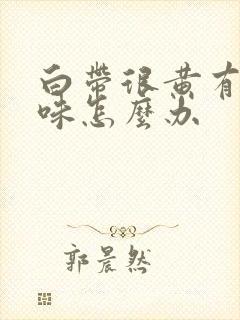 白帶很黃有
味怎麼办
郭晨然